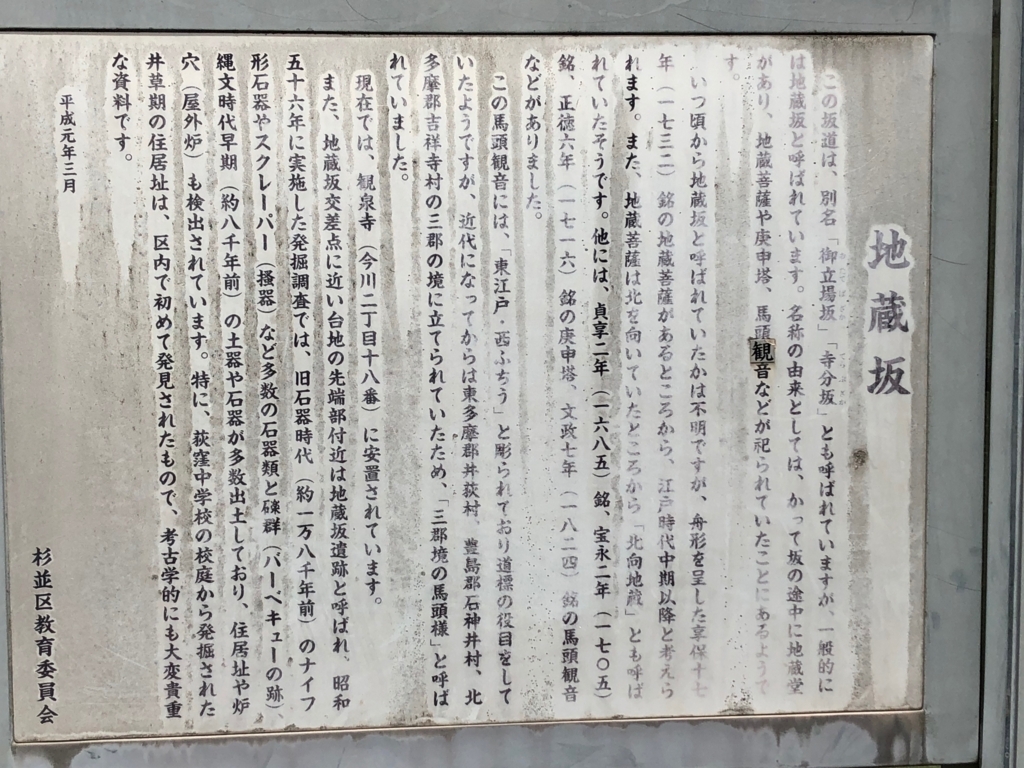 地蔵坂
この坂道は、別名「御立場坂」「寺分坂」とも呼ばれていますが、一般的に
は地蔵坂と呼ばれています。名称の由来としては、かって坂の途中に地蔵堂
があり、地蔵菩薩や庚申塔、馬頭観音などが祀られていたことにあるようで
す。
いつ頃から地蔵坂と呼ばれていたかは不明ですが、舟形を呈した享保十七
年（一七三二）銘の地蔵菩薩があるところから、江戸時代中期以降と考えら
れます。また、地蔵菩薩は北を向いていたところから「北向地蔵」とも呼ば
れていたそうです。他には、貞享二年（一六八五）銘、宝永二年（一七〇五）
銘、正徳六年（一七一六）銘の庚申塔、文政七年（一八二四）銘の馬頭観音
などがありました。
この馬頭観音には、「東江戸・西ふちう」と彫られており道標の役目をして
いたようですが、近代になってからは東多摩郡井荻村、豊島郡石神井村、北
多摩郡吉祥寺村の三郡の境に立てられていたため、「三郡境の馬頭様」と呼ば
れていました。
現在では、観泉寺（今川二丁目十八番）に安置されています。
また、地蔵坂交差点に近い台地の先端部付近は地蔵坂遺跡と呼ばれ、昭和
五十六年に実施した発掘調査では、旧石器時代（約一万八千年前）のナイフ
形石器やスクレーパー（掻器）など多数の石器類と礫群（バーベキューの跡）、
縄文時代早期（約八千年前）の土器や石器が多数出土しており、住居址や炉
穴（屋外炉）も検出されています。特に、荻窪中学校の校庭から発掘された
井草期の住居址は、区内で初めて発見されたもので、考古学的にも大変貴重
な資料です。
平成元年三月
杉並区教育委員会